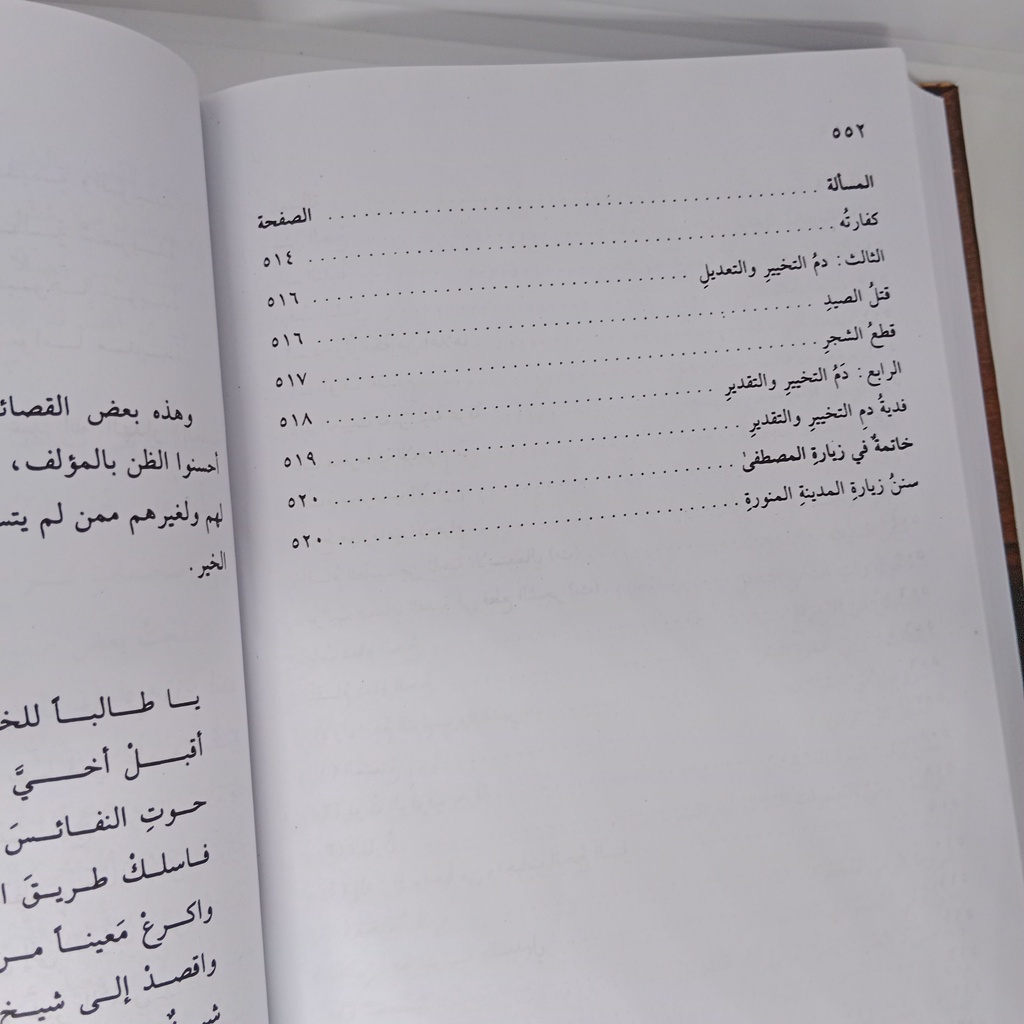 ٥٥٢
المسألة ........ الصفحة
كفارتُه ........ ٥١٤
الثالث: دمُ التخييرِ والتعديلِ ........ ٥١٦
قتلُ الصيدِ ........ ٥١٦
قطعُ الشجرِ ........ ٥١٧
الرابع: دَمُ التخييرِ والتقديرِ ........ ٥١٨
فديةُ دمِ التخييرِ والتقديرِ ........ ٥١٩
خاتمةٌ في زيارةِ المصطفىٰ ........ ٥٢٠
سننُ زيارةِ المدينةِ المنورةِ ........ ٥٢٠
وهذه بعض
أحسنوا الظن بالمؤلف،
لهم ولغيرهم ممن لم
الخير.
يــا طــالبــاً
أقبــلْ أخــيَّ
حــوتِ النفــائــسَ
فــاسلــكْ طــريــقَ
واكــرعْ مَعينــاً
واقصــدْ إلــى شيــخ